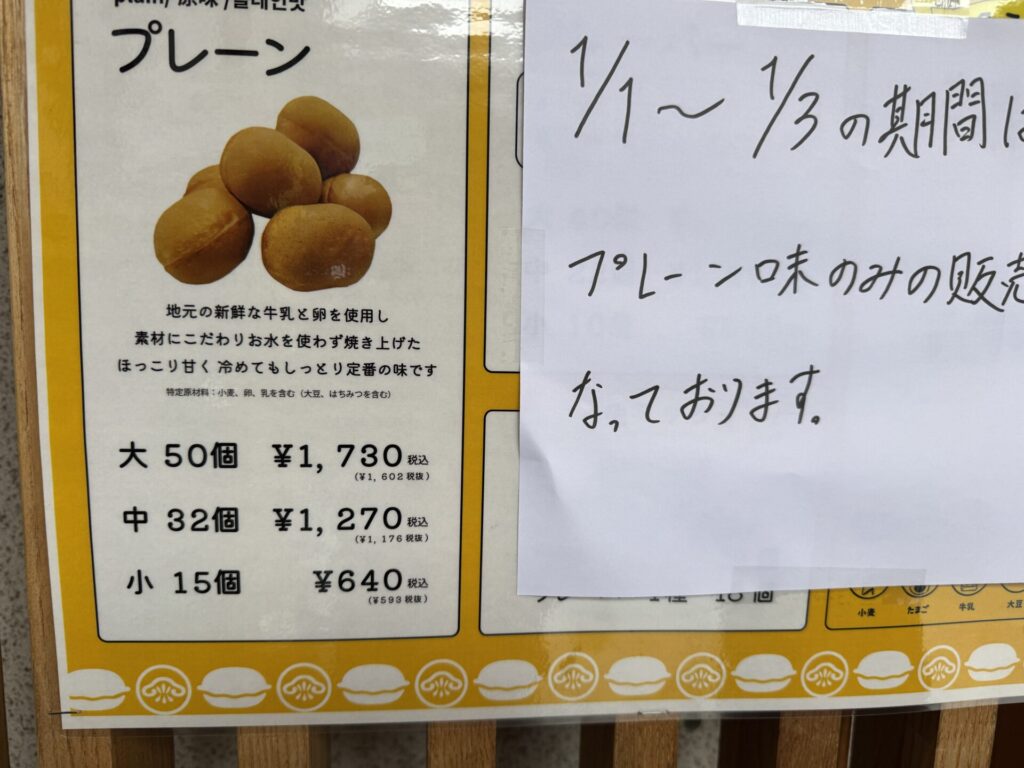 plain/ 原味 /플레인맛
プレーン
地元の新鮮な牛乳と卵を使用し
素材にこだわりお水を使わず焼き上げた
ほっこり甘く 冷めてもしっとり定番の味です
特定原材料：小麦、卵、乳を含む（大豆、はちみつを含む）
大 50個 ¥1,730 税込
(¥1,602税抜)
中 32個 ¥1,270 税込
(¥1,176税抜)
小 15個 ¥640 税込
(¥593税抜)
1/1～1/3の期間は
プレーン味のみの販売
なっております。
小麦 たまご 牛乳 大豆